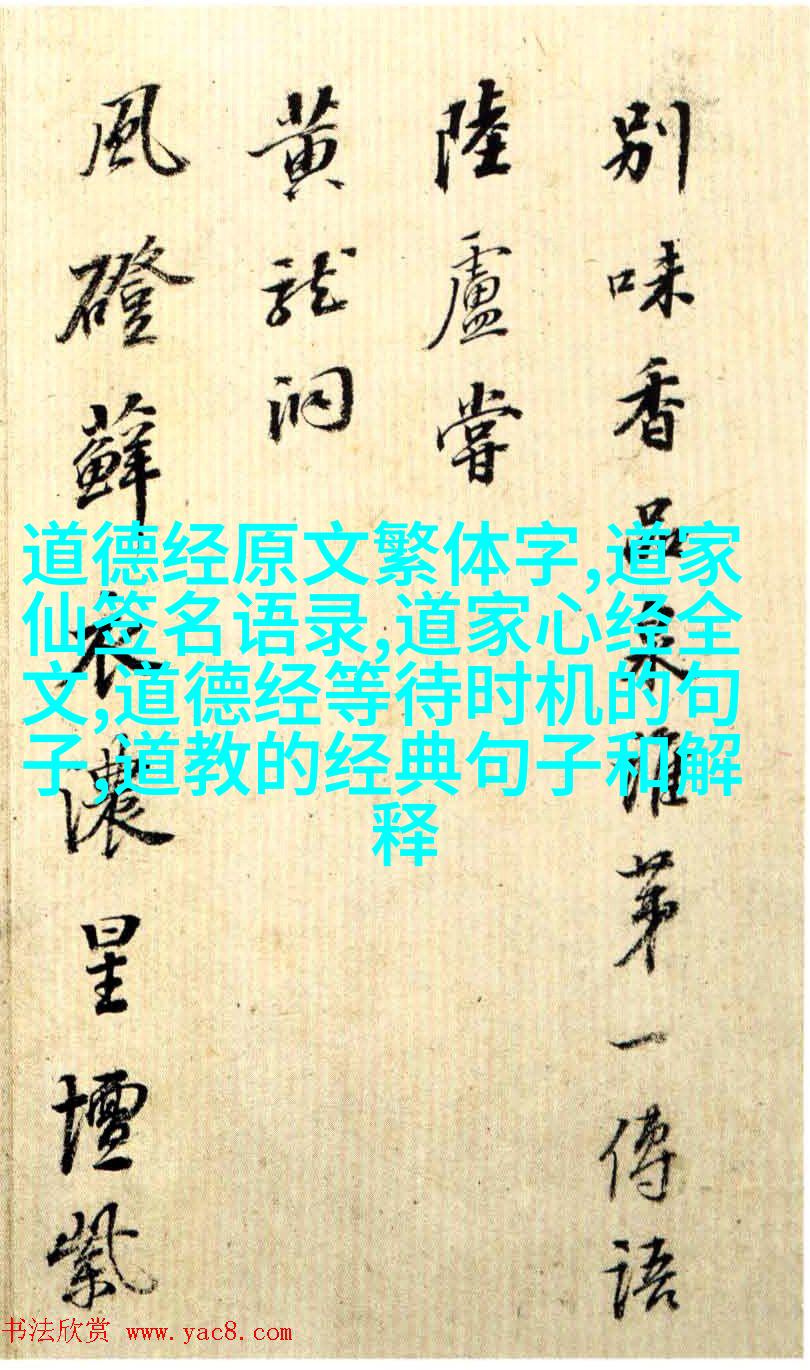 別味香品泉誰第一傳語
陸盧嘗
黃龍洞
風磴蘚衣濃星壇紫
道德经原文繁体字,道家
仙签名语录,道家心经全
文,道德经等待时机的句
子,道教的经典句子和解
释
书法欣赏 www.yac8.com